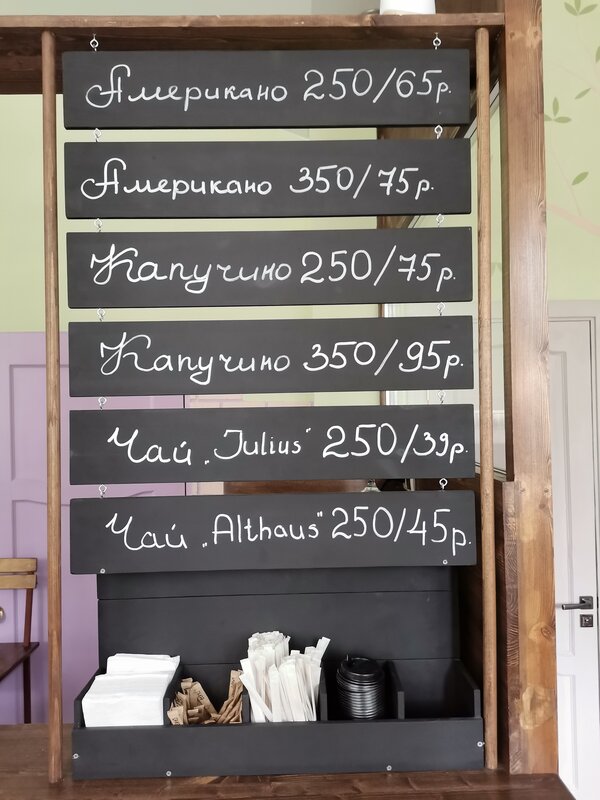 Американо 250/65р.
Американо 350/75р.
Капучино 250/75р.
Капучино 350/95р.
Чай „Julius“ 250/39р.
Чай „Althaus“ 250/45р.